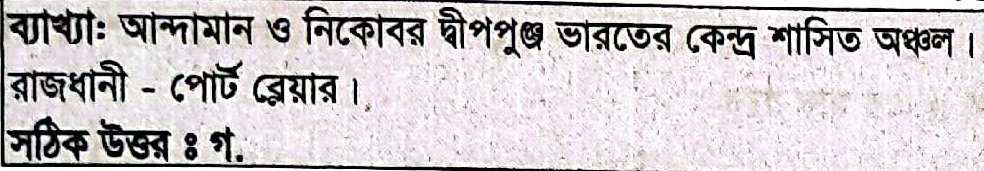 ব্যাখ্যাঃ আন্দামান ও নিকোবর দ্বীপপুঞ্জ ভারতের কেন্দ্র শাসিত অঞ্চল।
রাজধানী - পোর্ট ব্লেয়ার।
সঠিক উত্তর ঃ গ.